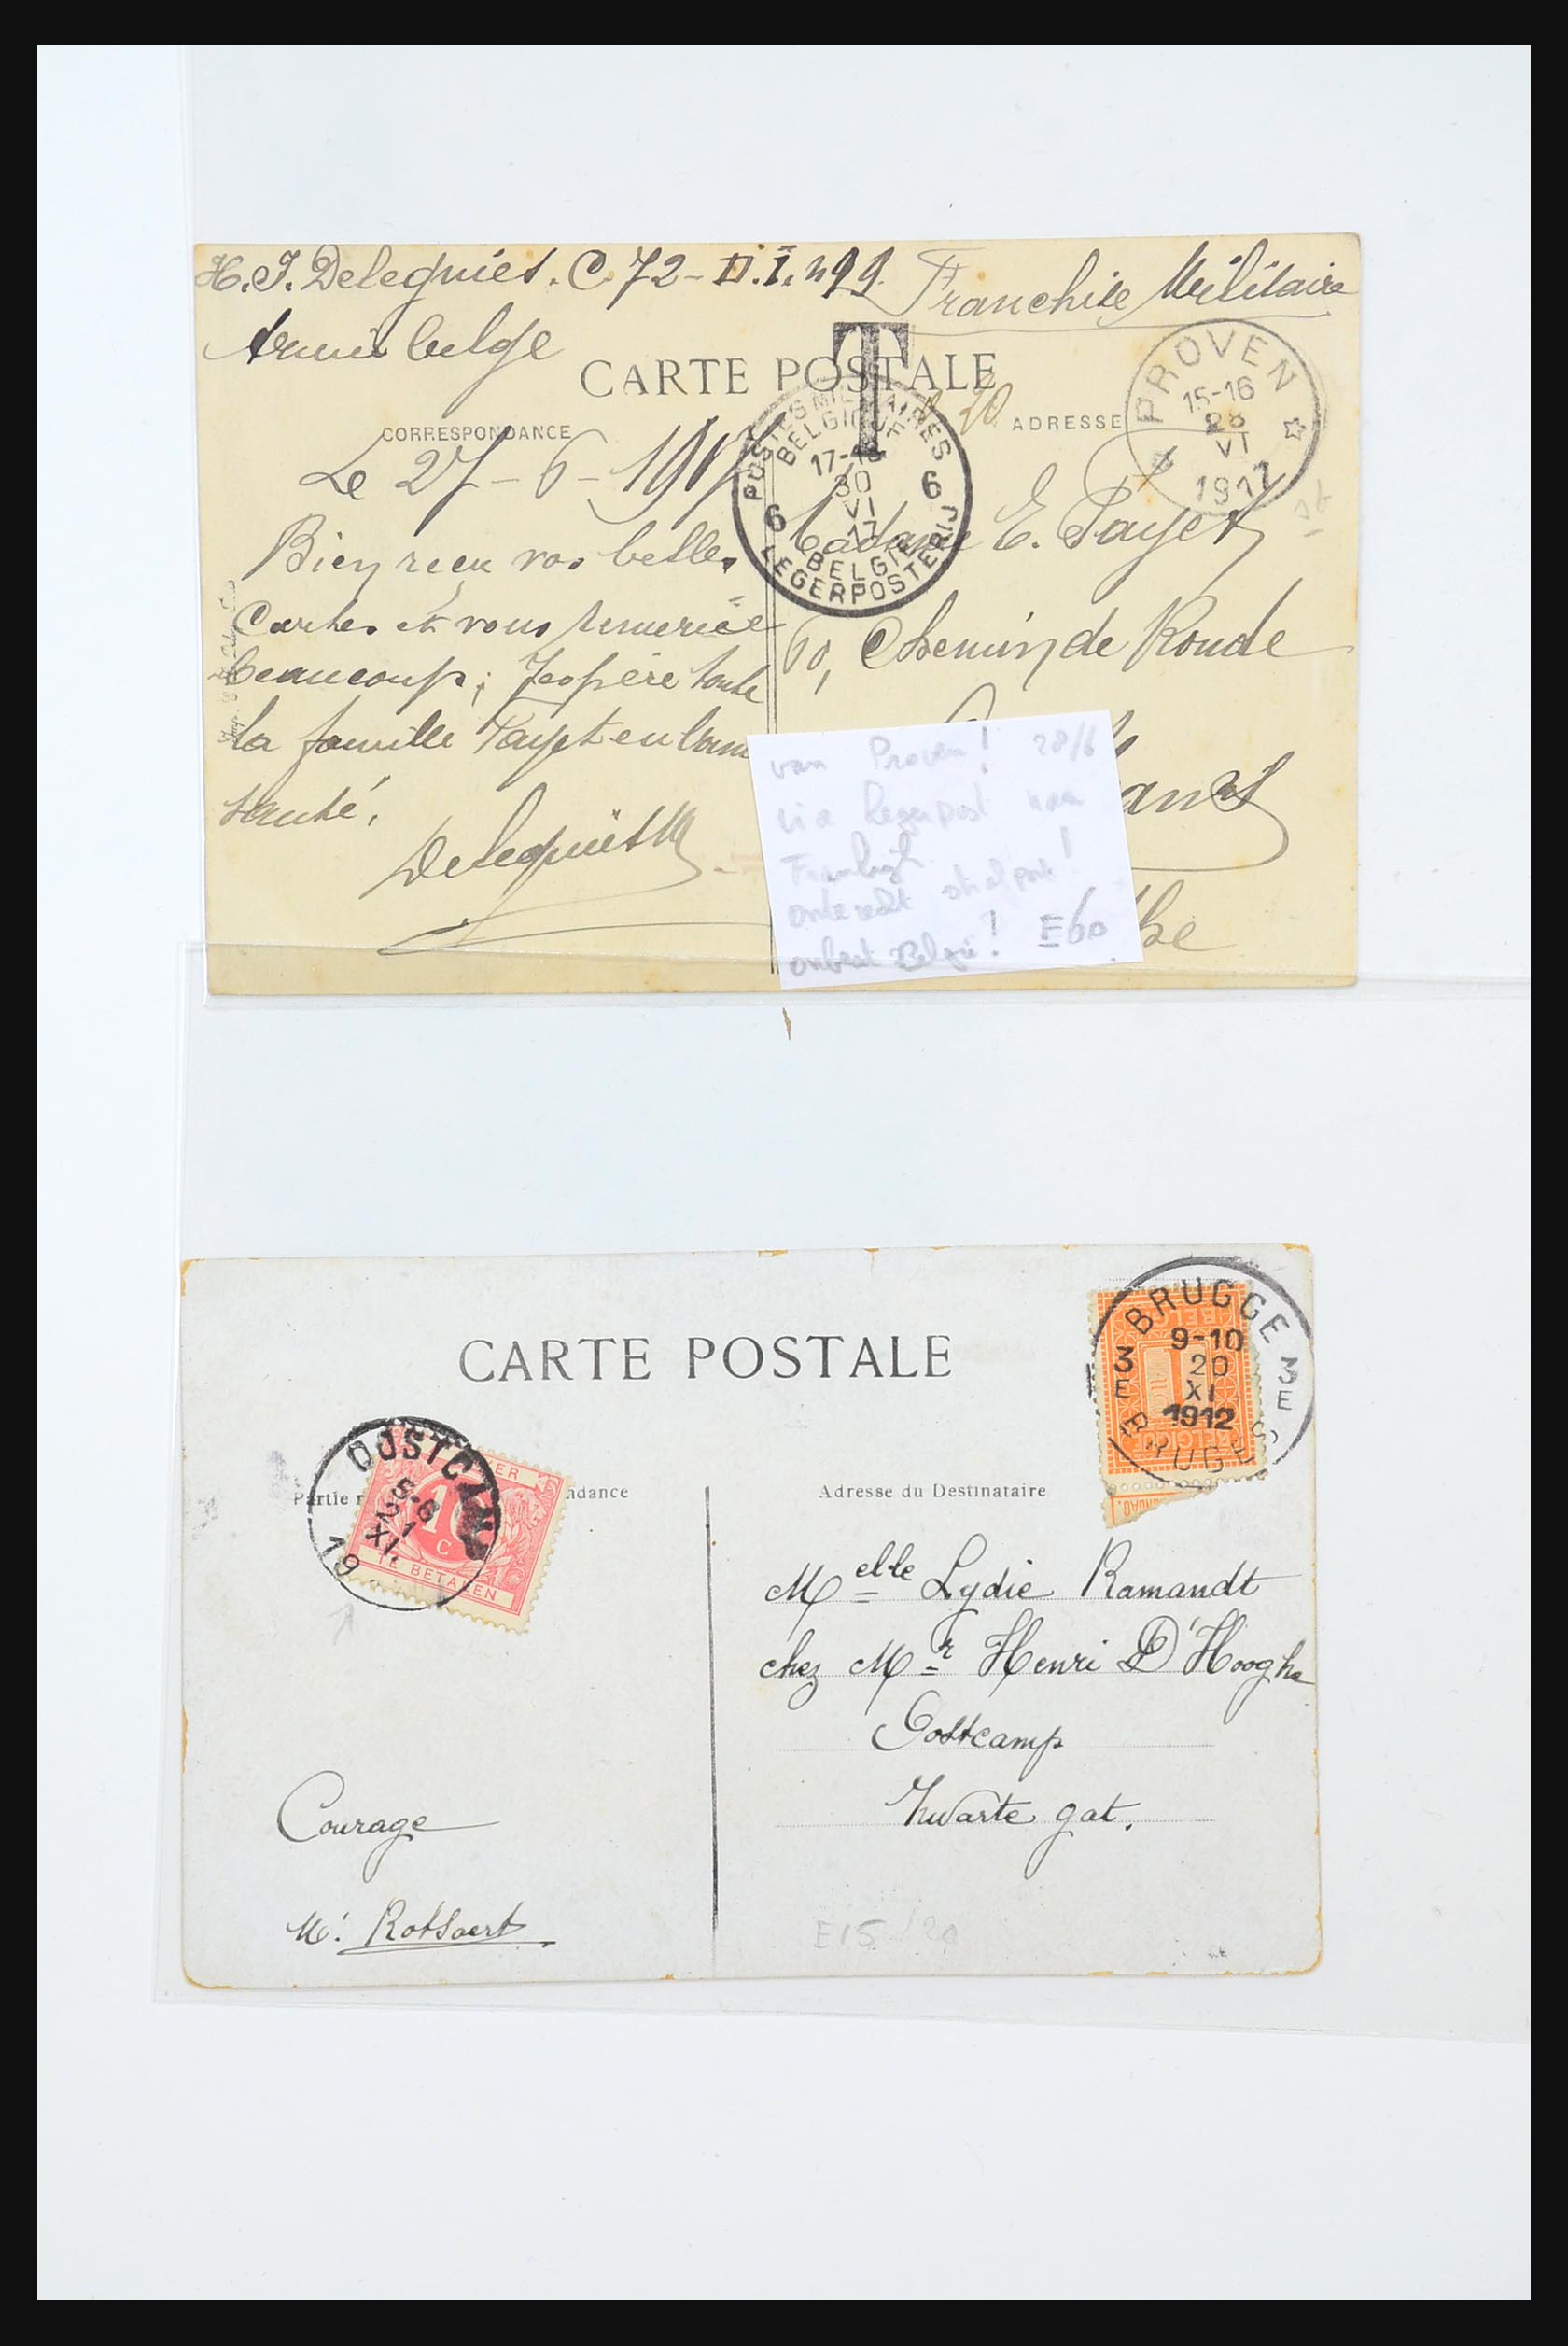 H. J. Delegniés. C 72 - D.I. 499. Franchise Militaire
Armée belge
CARTE POSTALE
T
20
CORRESPONDANCE
ADRESSE
PROVEN
15-16
28
VI
1917
POSTES MILITAIRES
BELGIQUE
17-18
30
VI
17
6 6
BELGIE
LEGERPOSTERIJ
Le 27-6-1917
Bien recu vos belles
Cartes et vous remercie
beaucoup; J'espère toute
la famille Payet en bonne
santé.
Madame E. Payet
60, Chemin de Ronde
van Proven! 28/6
via legerpost naar
onterecht strafport!
België! E60
CARTE POSTALE
BRUGGE
9-10
20
XI
1912
3 3
E E
BRUGES
OOSTCAMP
5-6
21
XI
19
10
C
TE BETALEN
Adresse du Destinataire
Melle Lydie Ramandt
chez Mr Henri D'Hooghe
Oostcamp
Zwarte gat.
Courage
M. Rotsaert
E15/20